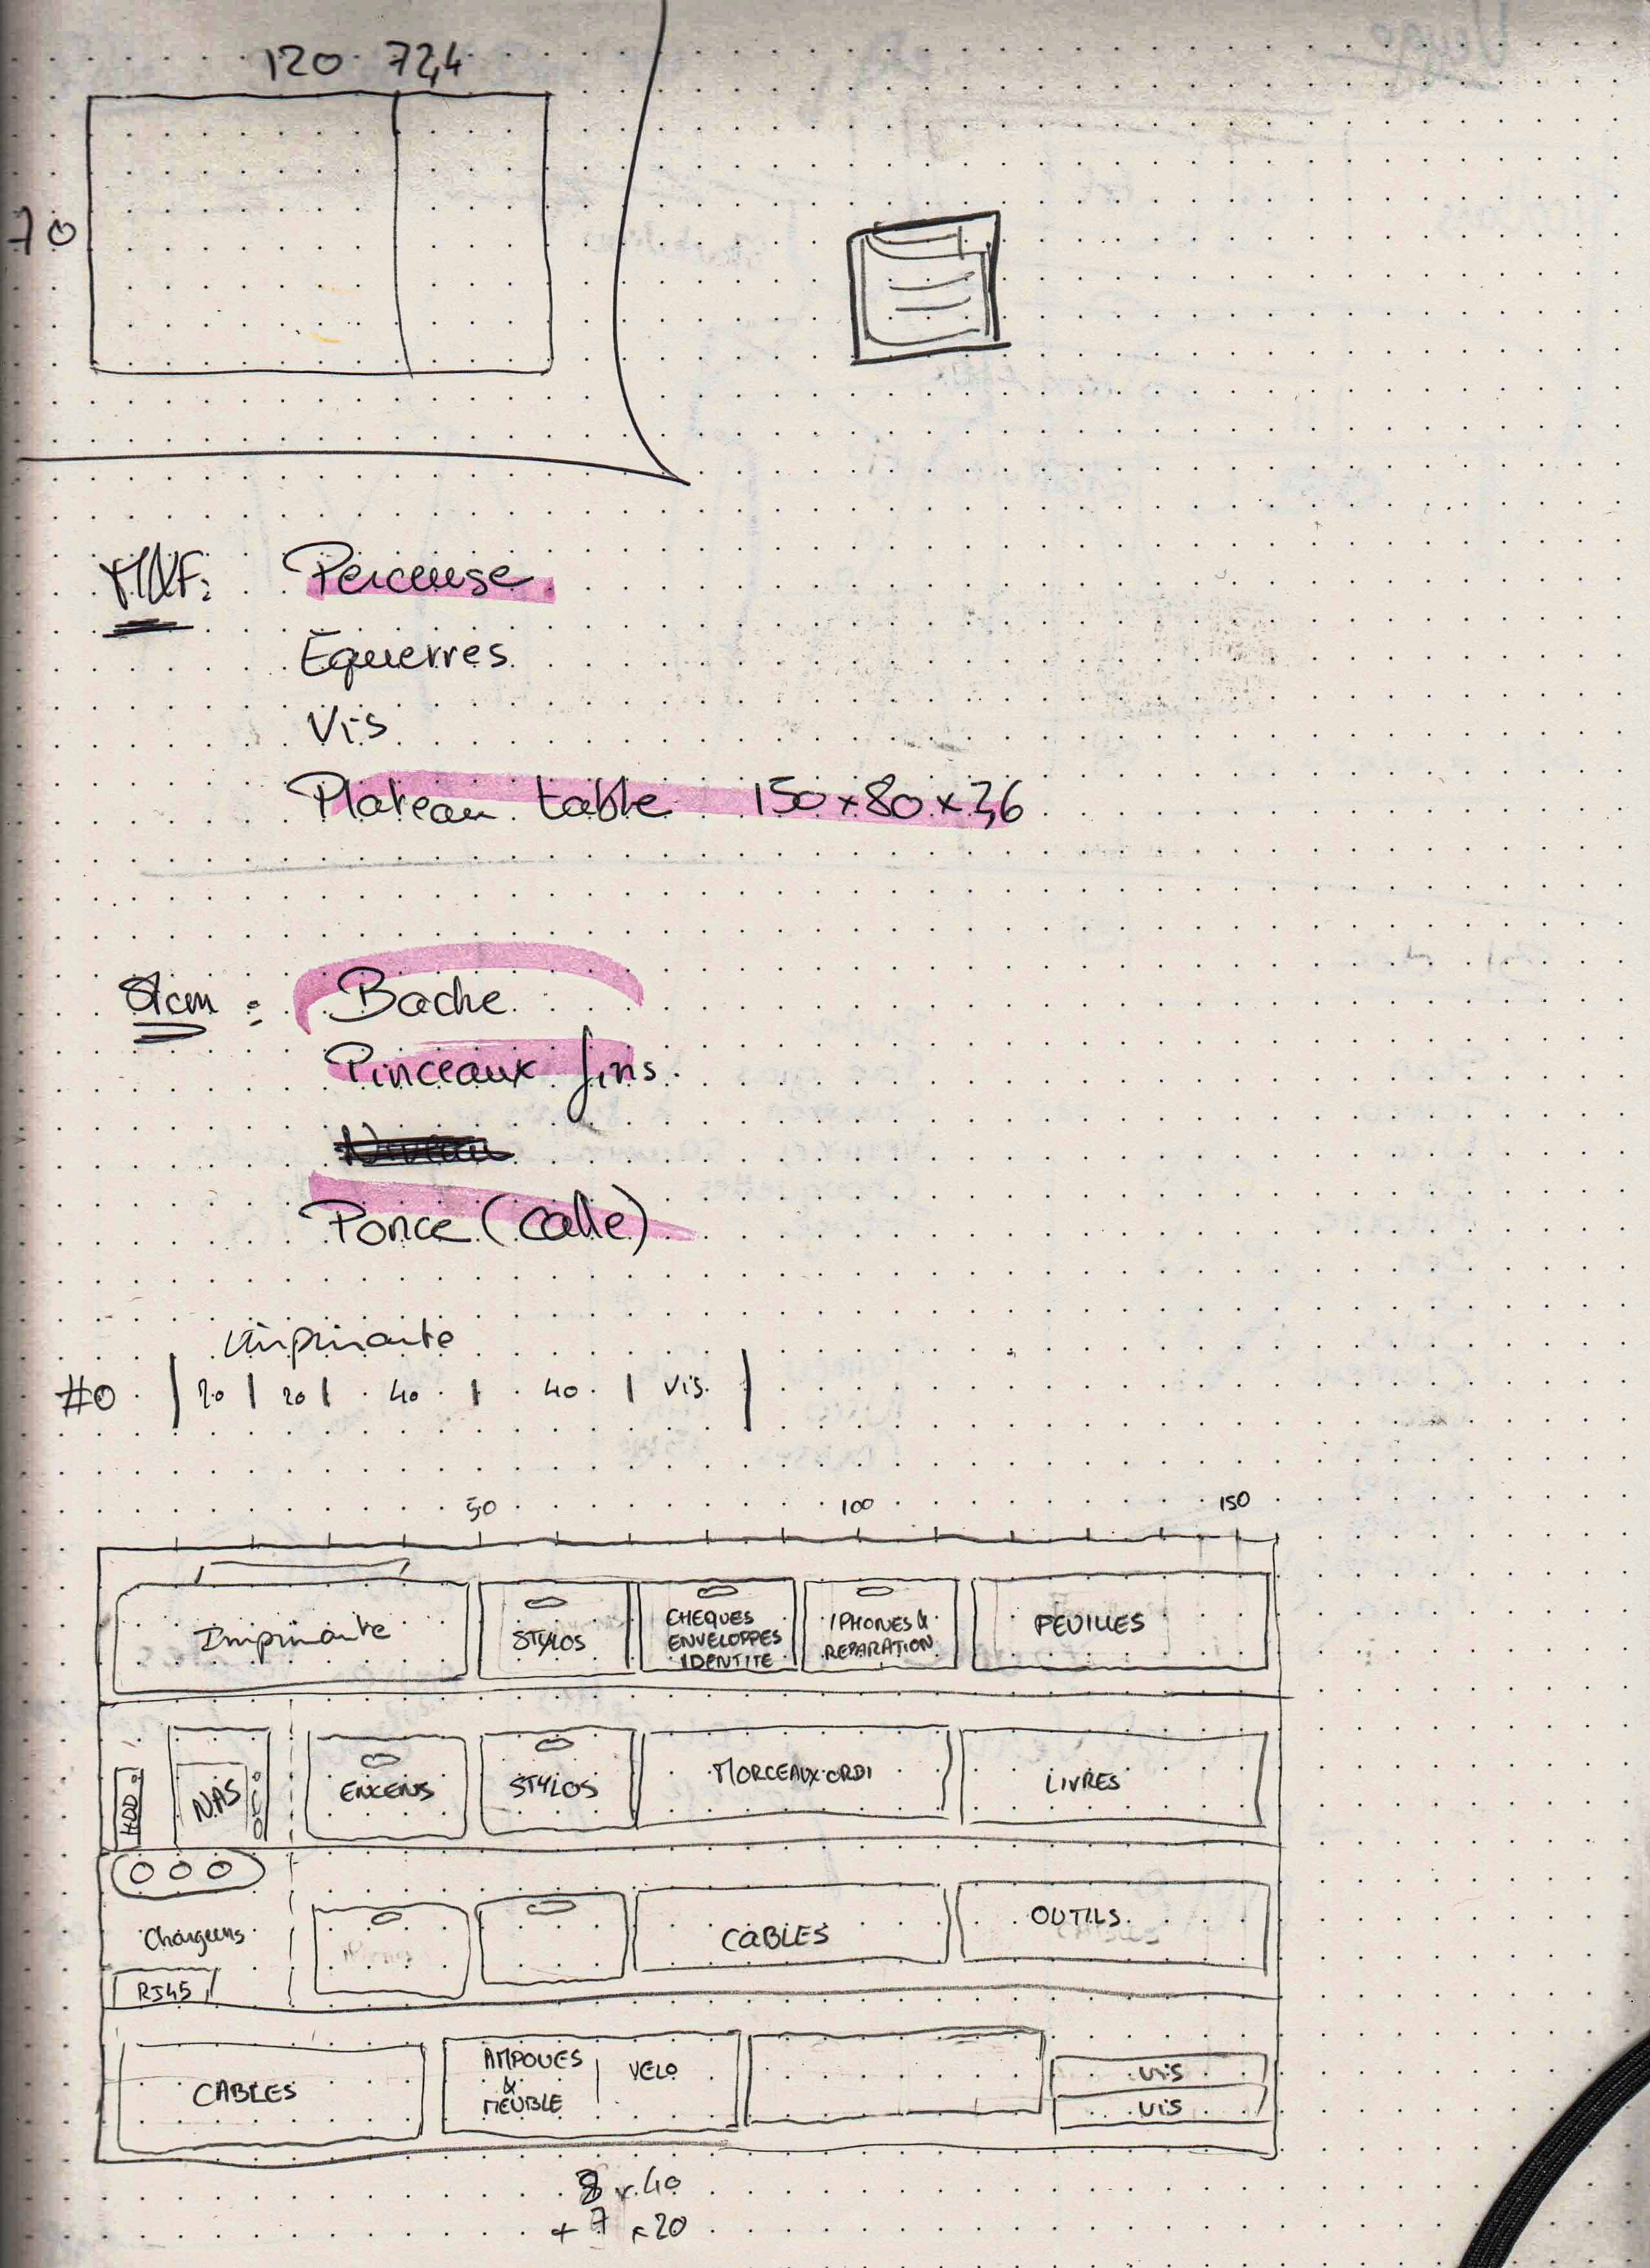 120 72,4
70
MNF: Perceuse
Équerres
Vis
Plateau table 150x80x3,6
Bache
Pinceaux fins
Ponce (calle)
Imprimante
#0 | 20 | 20 | 40 | 40 | Vis |
50 100 150
Imprimante
STYLOS
CHEQUES
ENVELOPPES
IDENTITE
IPHONES &
REPARATION
FEUILLES
HDD
NAS
ENCENS
STYLOS
MORCEAUX ORDI
LIVRES
Chargeurs
RJ45
CABLES
OUTILS
CABLES
AMPOUES
&
MEUBLE
VELO
VIS
VIS
8 x 40
+ 7 x 20